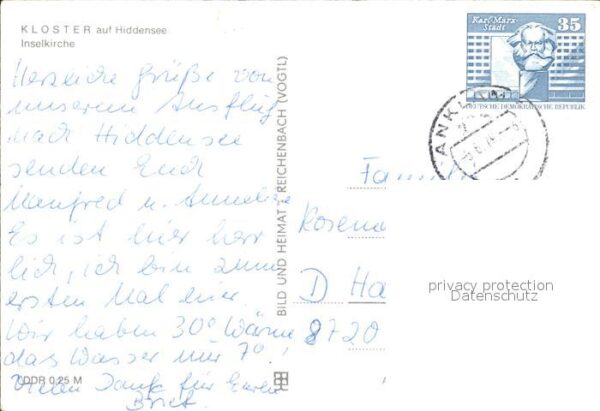 KLOSTER auf Hiddensee
Inselkirche
Herzliche Grüße von
unserem Ausflug
nach Hiddensee
senden Euch
Manfred u. Annelise
Es ist hier herr
lich, ich bin zum
ersten Mal hier.
Wir haben 30° Wärme
das Wasser nur 7°!
Vielen Dank für Euren
Brief.
DDR 0,25 M
BILD UND HEIMAT REICHENBACH (VOGTL)
Karl-Marx-
Stadt
35
DEUTSCHE DEMOKRATISCHE REPUBLIK
ANKL
Fam
Rosen
D Ha
8720
privacy protection
Datenschutz